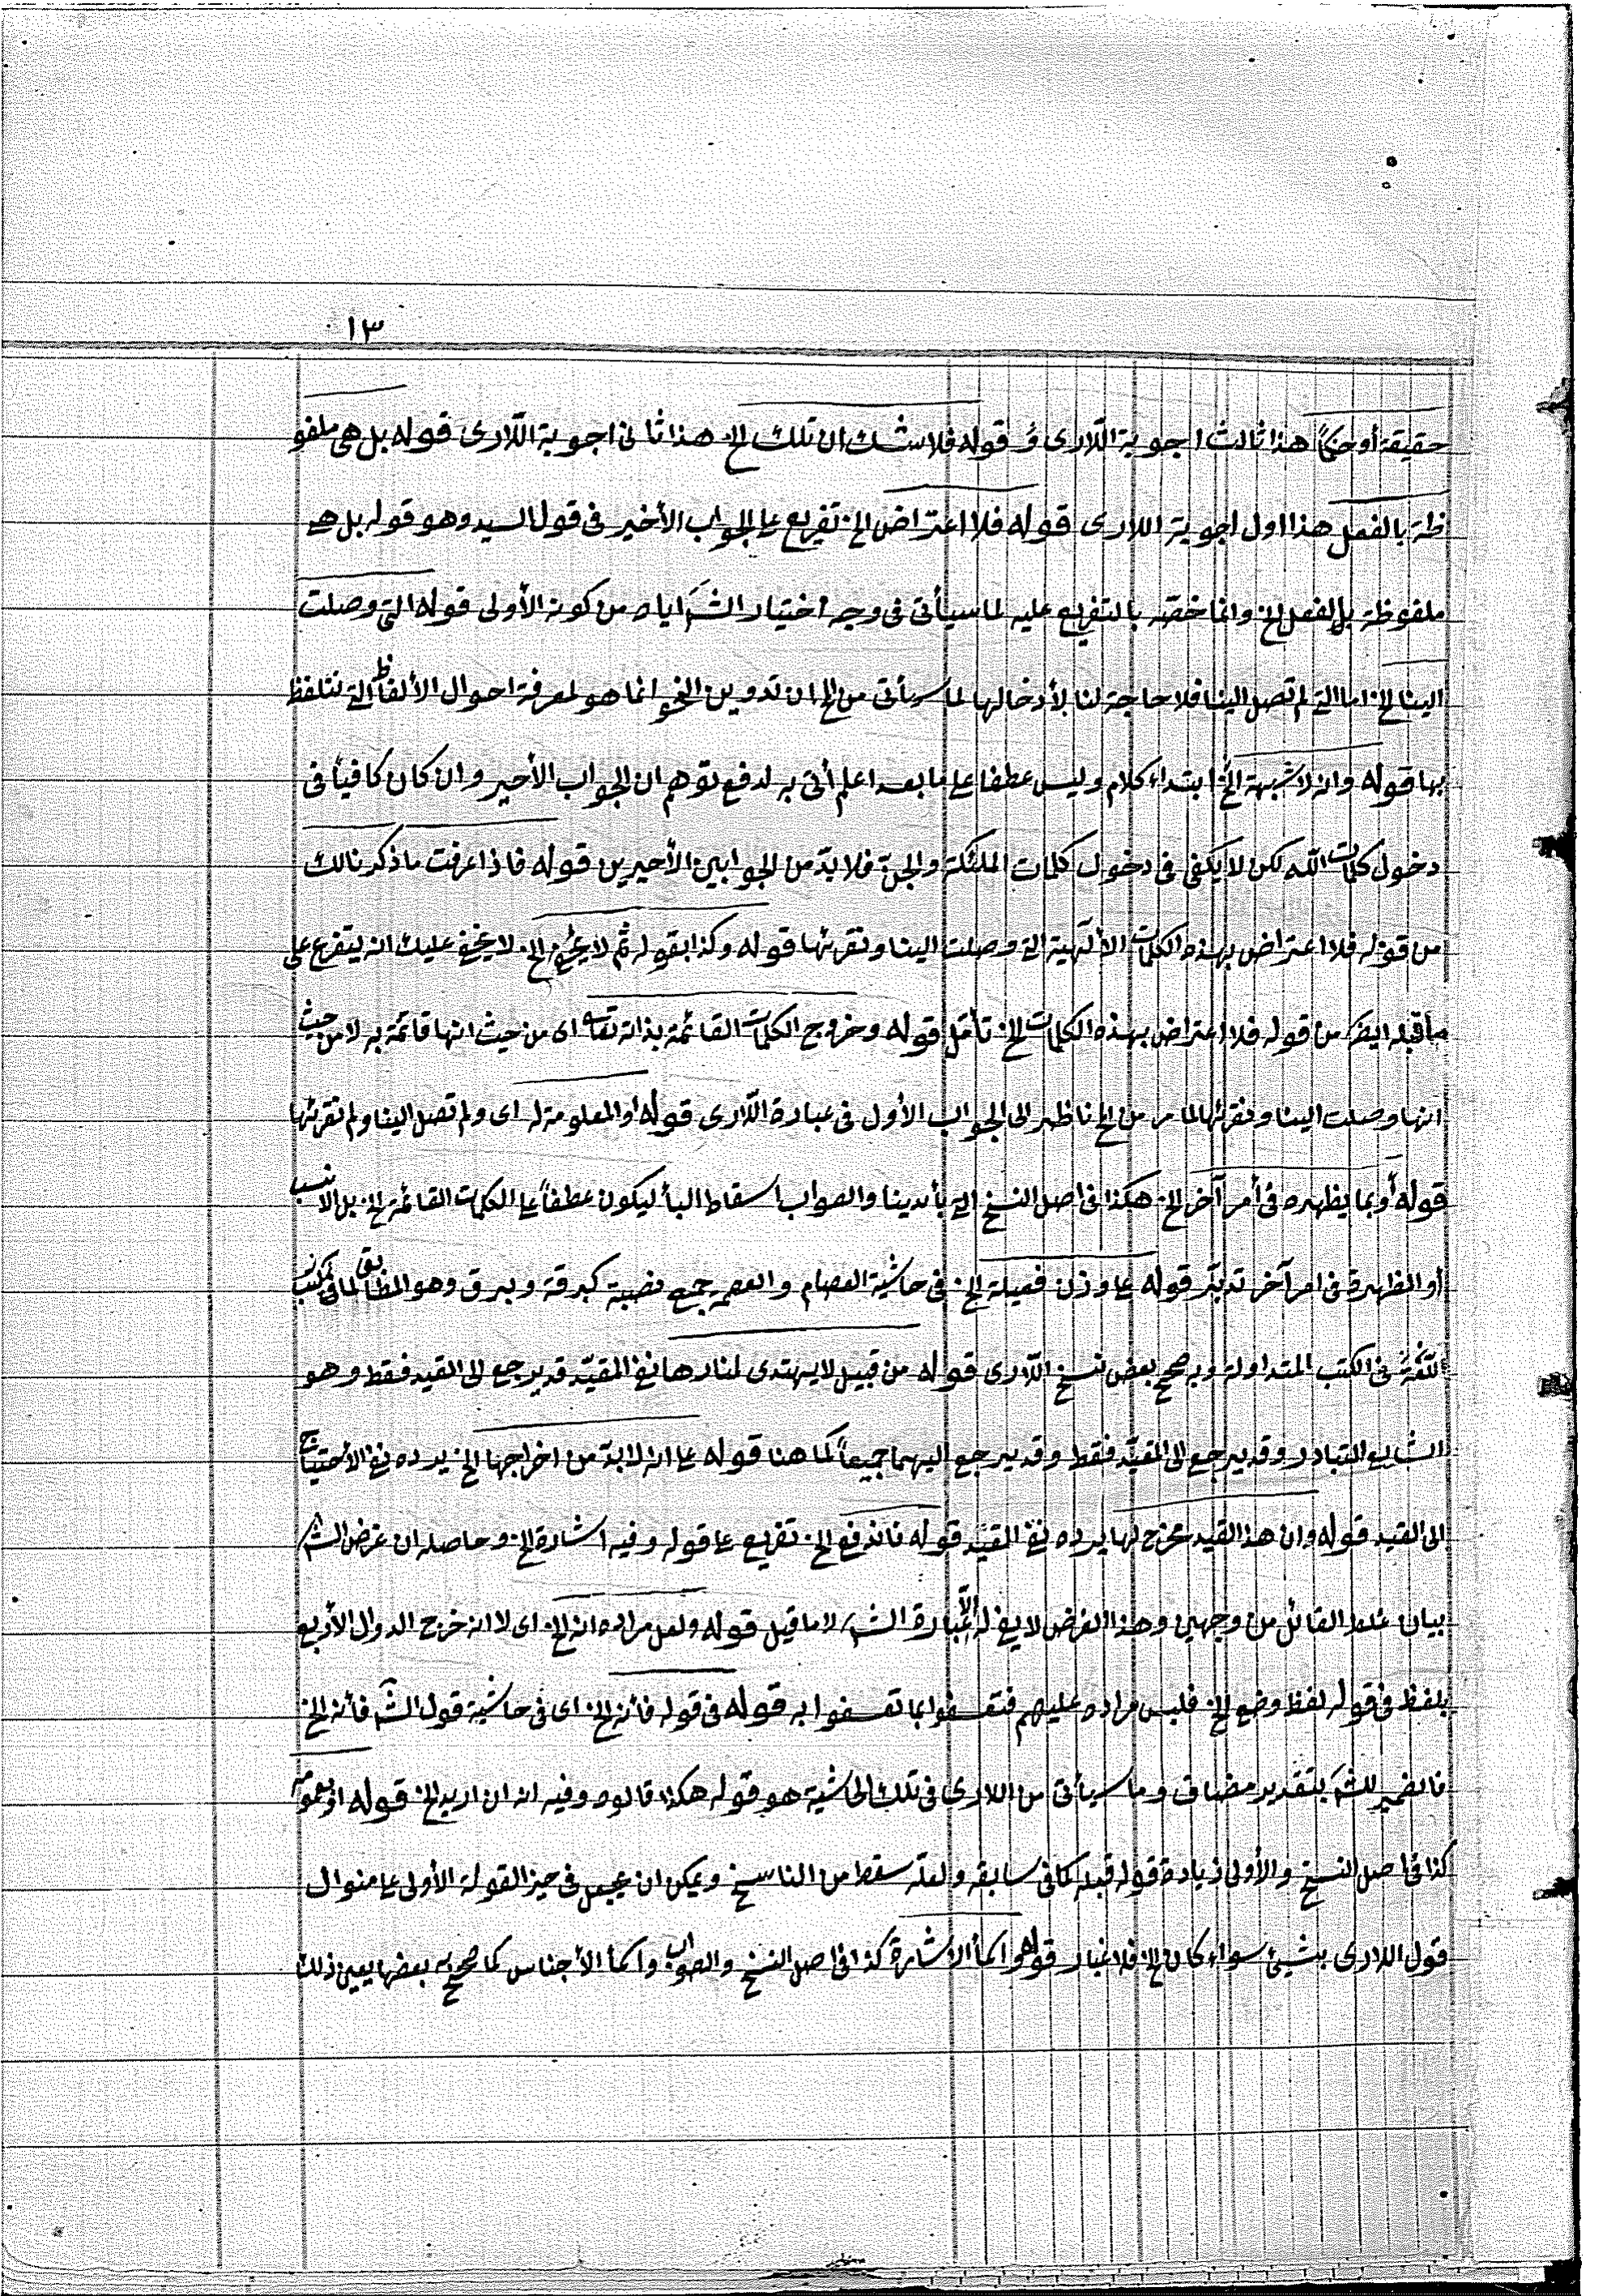 ١٣
حقيقة أو حكماً هذا ثالث اجوبة اللّارى وَ قوله فلا شك ان تلك الخ هذا ثانى اجوبة اللّارى قوله بل هى ملفو
ظة بالفعل هذا اول اجوبة اللارى قوله فلا اعتراض الخ تفريع على الجواب الأخير فى قول السيد وهو قوله بل هى
ملفوظة بالفعل الخ وانما خصّه بالتفريع عليه لما سيأتى فى وجه اختيار الشَم اياه من كونه الأولى قوله التى وصلت
الينا الخ اما التى لم تصل الينا فلا حاجة لنا لأدخالها لما سيأتى من الخ ان تدوين النحو انما هو لمعرفة احوال الألفاظ التى نتلفظ
بها قوله وانه لا شبهة الخ ابتداء كلام وليس عطفا على ما بعد اعلم أتى به لدفع توهم ان الجواب الأخير وان كان كافياً فى
دخول كلمات اللّه لكن لا يكفى فى دخول كلمات الملئكة والجن فلا بدّ من الجوابين الأخيرين قوله فاذا عرفت ما ذكرنا لك
من قوله فلا اعتراض بهذه الكلمات الألٓهية التى وصلت الينا ونقرئها قوله وكذا بقوله ثم لا يخفى الخ لا يخفى عليك انه يتفرع على
ما قبله ايضً من قوله فلا اعتراض بهذه الكلمات الخ تأمّل قوله وخروج الكلمات القائمة بذاته تعالى اى من حيث انها قائمة به لا من حيث
انها وصلت الينا ونقرئها لما مر من الخ ناظر الى الجواب الأول فى عبارة اللّارى قوله أو المعلومة له اى ولم تصل الينا ولم نقرئها
قوله أو بما يظهره فى أمر آخر الخ هكذا فى اصل النسخ التى بأيدينا والصواب اسقاط البأ ليكون عطفاً على الكلمات القائمة الخ بل الانسب
أو الظاهرة فى امر آخر تدبّر قوله على وزن فعيلة الخ فى حاشية العصام والعصى جمع عصية كبرقة وبرق وهو المطابق لما فى كتب
اللّغة فى الكتب المتداولة وبه صحح بعض نسخ اللّارى قوله من قبيل لا يهتدى لمنارها نفى المقيّد قد يرجع الى القيد فقط وهو
الشايع المتبادر وقد يرجع الى المقيّد فقط وقد يرجع اليهما جميعاً كما هنا قوله على انه لا بدّ من اخراجها الخ يرده نفى الأحتياج
الى القيد قوله وان هذا القيد مخرج لها يرده نفى المقيّد قوله فاندفع الخ تفريع على قوله وفيه اشارة الخ وحاصله ان غرض الشم
بيان غلط القائل من وجهين وهذا الغرض لا يفى له الّا عبارة الشم لا ما قيل قوله ولعل مراده انه الخ اى لا انه خرج الدوال الأربع
بلفظ فى قوله لفظ وضع الخ فليس مراده عليهم فتعسفوا بما تعسفوا به قوله فى قوله فأنه الخ اى فى حاشية قول الشَم فأنه الخ
فالضمير للشم بتقدير مضاف وما سيأتى من اللارى فى تلك الحاشية هو قوله هكذا قالوه وفيه انه ان اريد الخ قوله او بعمومه
كذا فى اصل النسخ والأولى زيادة قوله قبله كما فى سابقه ولعلّه سقط من الناسخ ويمكن ان يجعل فى حيز القولة الأولى على منوال
قول اللارى بشيئ سواء كان الخ فلا غبار قوله واسمأ الاشارة كذا فى اصل النسخ والصواب واسمأ الأجناس كما صحح به بعضها يعين ذلك